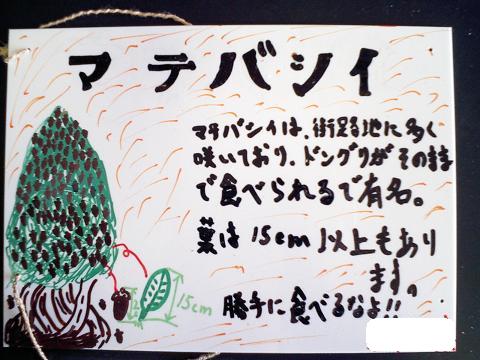 マテバシイ
マテバシイは、街路地に多く
咲いており、ドングリがそのまま
で食べられるで有名。
葉は15cm以上もあり
ます。
15cm
勝手に食べるなよ!!